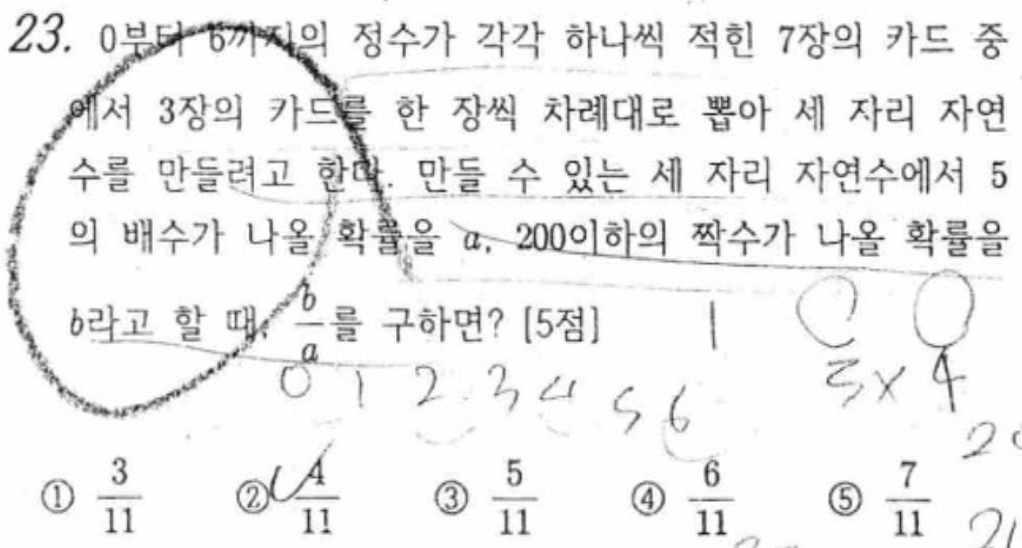 23. 0부터 6까지의 정수가 각각 하나씩 적힌 7장의 카드 중
에서 3장의 카드를 한 장씩 차례대로 뽑아 세 자리 자연
수를 만들려고 한다. 만들 수 있는 세 자리 자연수에서 5
의 배수가 나올 확률을 a, 200이하의 짝수가 나올 확률을
b라고 할 때, b/a를 구하면? [5점]
1
5×4
0 1 2 3 4 5 6
① 3/11 ② 4/11 ③ 5/11 ④ 6/11 ⑤ 7/11